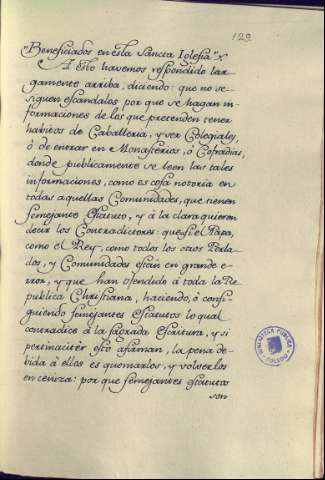 129
"Beneficiados en esta Sancta Iglesia."
A esto havemos respondido lar-
gamente arriba, diciendo: que no se
siguen escandalos por que se hagan in-
formaciones de los que pretenden tener
habitos de Cavalleria, y ser Colegiales,
ò de entrar en Monasterios, ò Cofradias,
donde publicamente se leen las tales
informaciones, como es cosa notoria en
todas aquellas Comunidades, que tienen
semejante Estatuto, y á la clara quieren
decir los Contradictores: que si el Papa,
como el Rey, como todos los otros Perla-
dos, y Comunidades estàn en grande e-
rror, y que han ofendido á toda la Re
publica Christiana, haciendo, ò consi-
guiendo semejantes Estatutos lo qual
contradice á la sagrada Escritura, y si
pertinacitèr esto afirman, la pena de-
bida à ellos es quemarlos, y volverlos
en ceniza: por que semejantes estatutos
son
BIBLIOTECA PUBLICA
TOLEDO